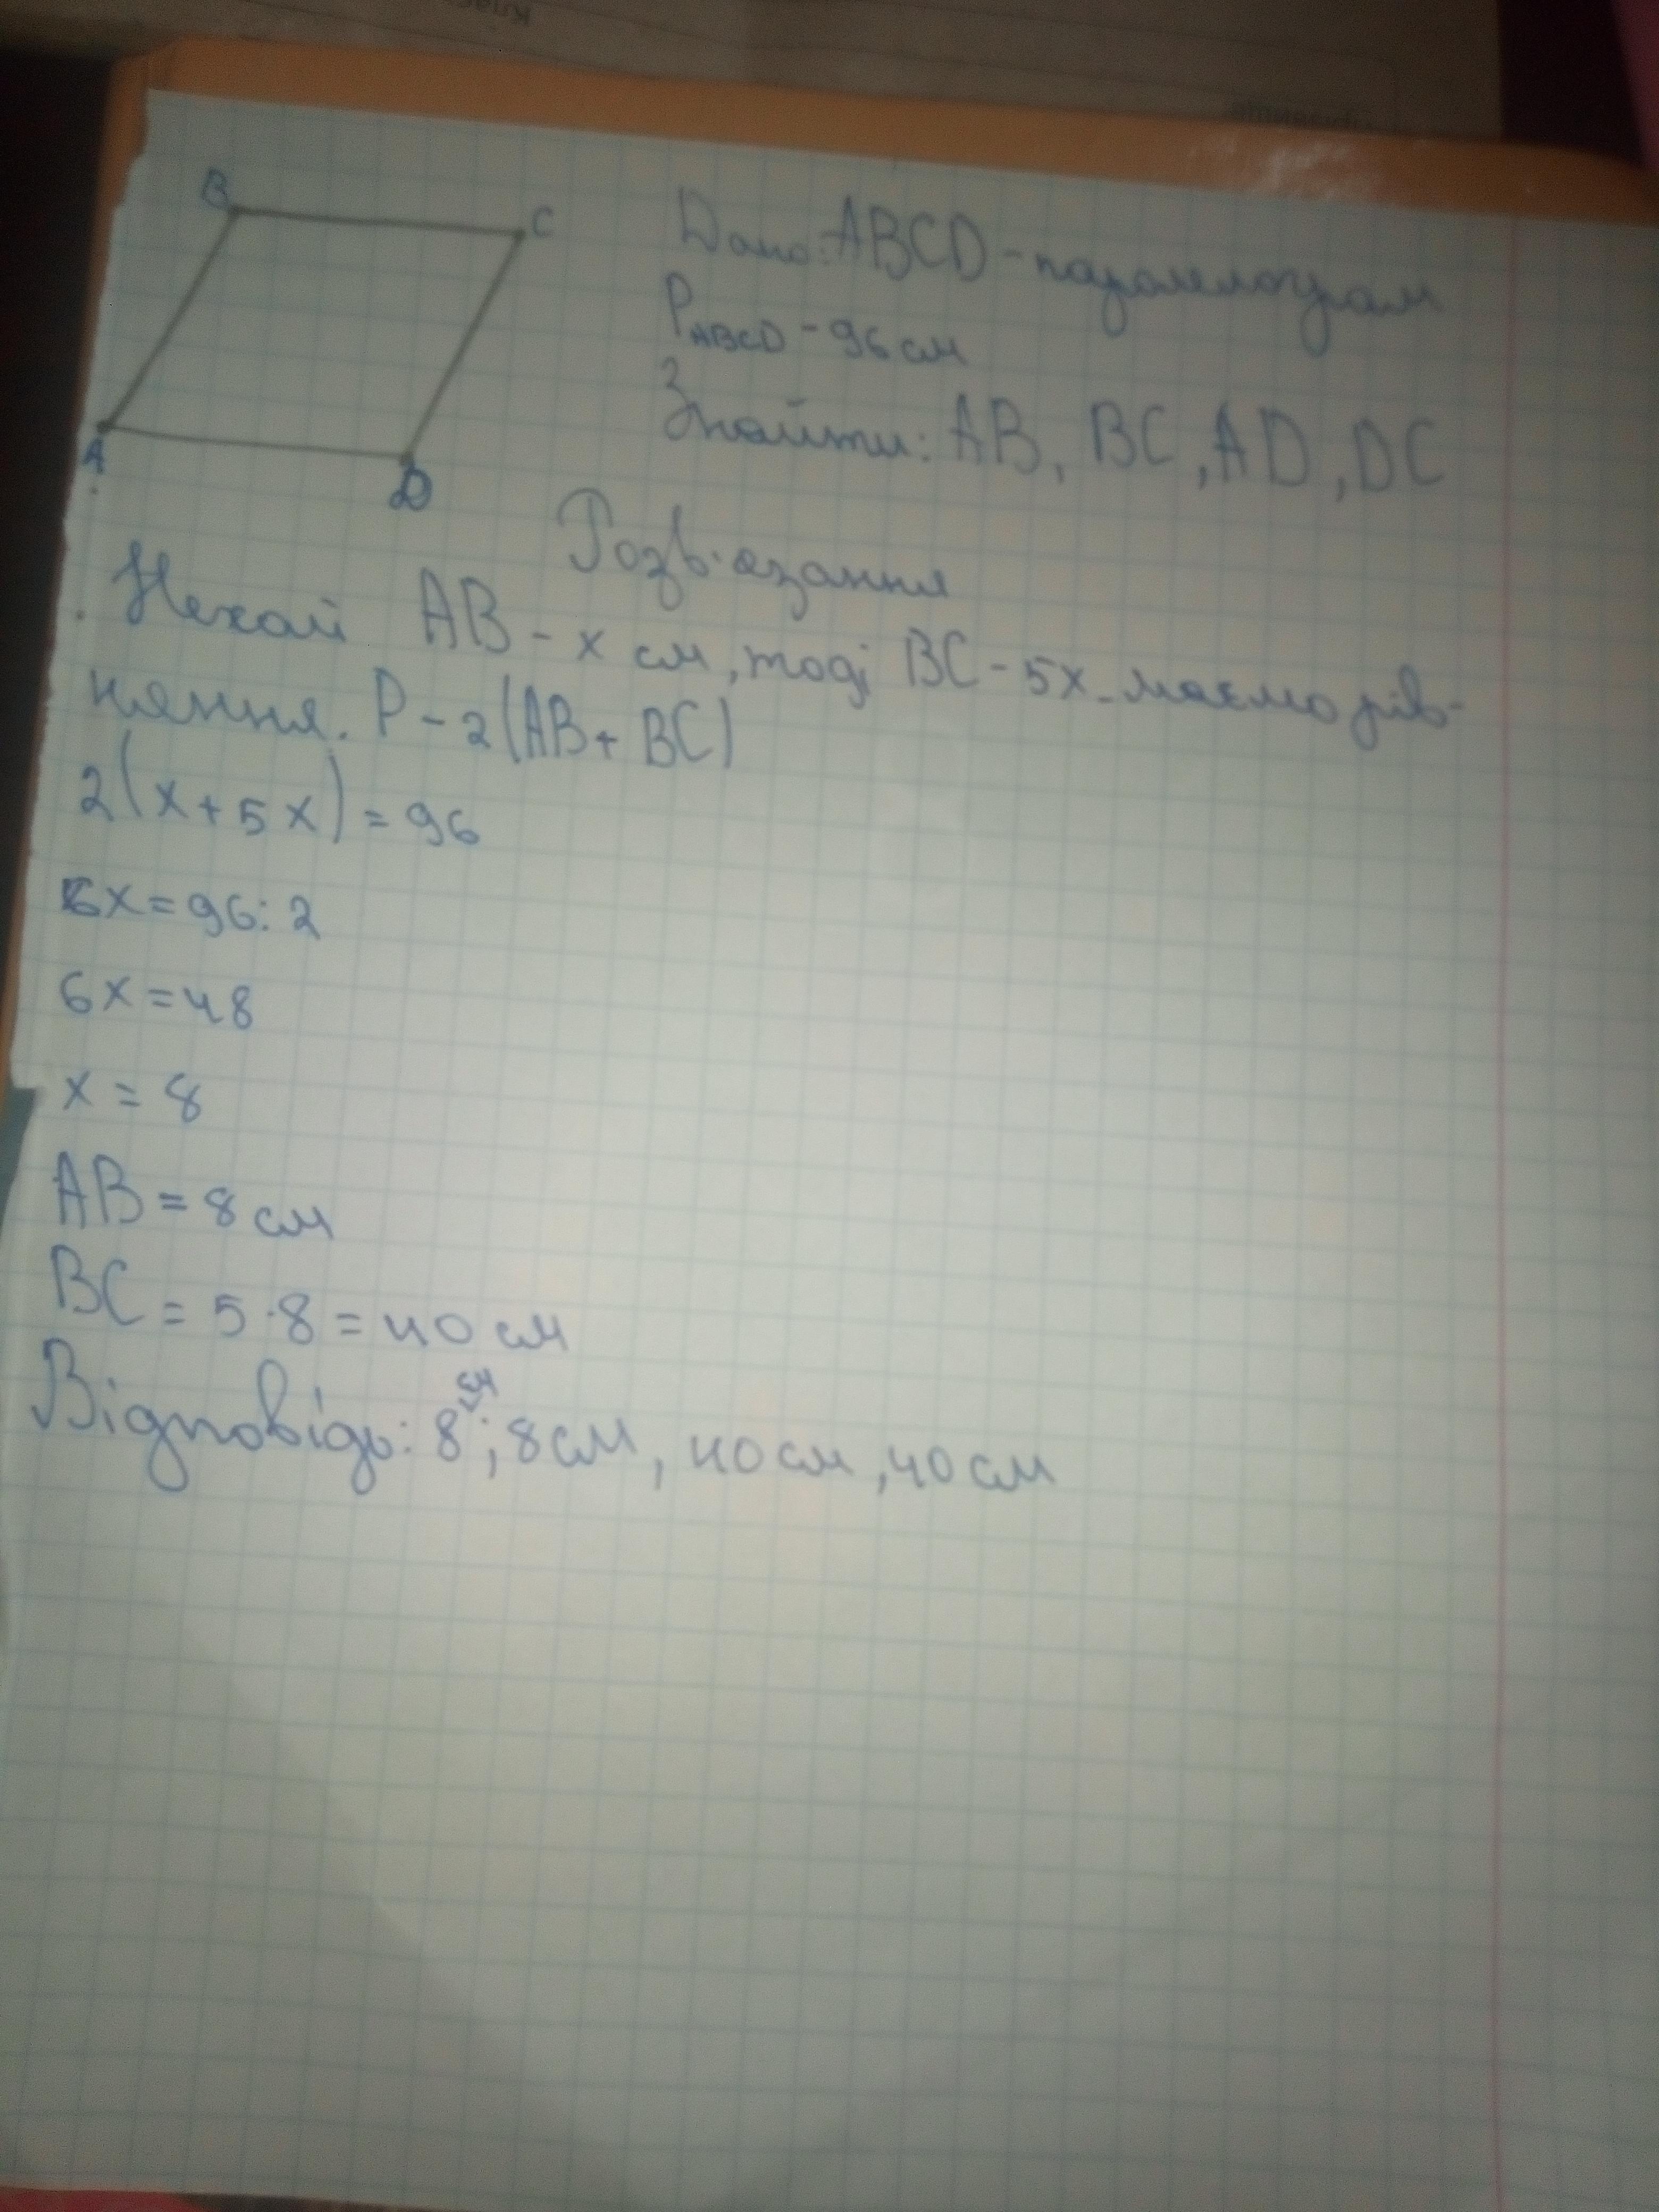 B
C
A
D
Дано: ABCD - паралелограм
P ABCD - 96 см
Знайти: AB, BC, AD, DC
Розв'язання
Нехай AB - x см, тоді BC - 5x. маємо рів-
няння. P - 2(AB + BC)
2(x + 5x) = 96
6x = 96 : 2
6x = 48
x = 8
AB = 8 см
BC = 5 · 8 = 40 см
Відповідь: 8 см; 8 см, 40 см, 40 см